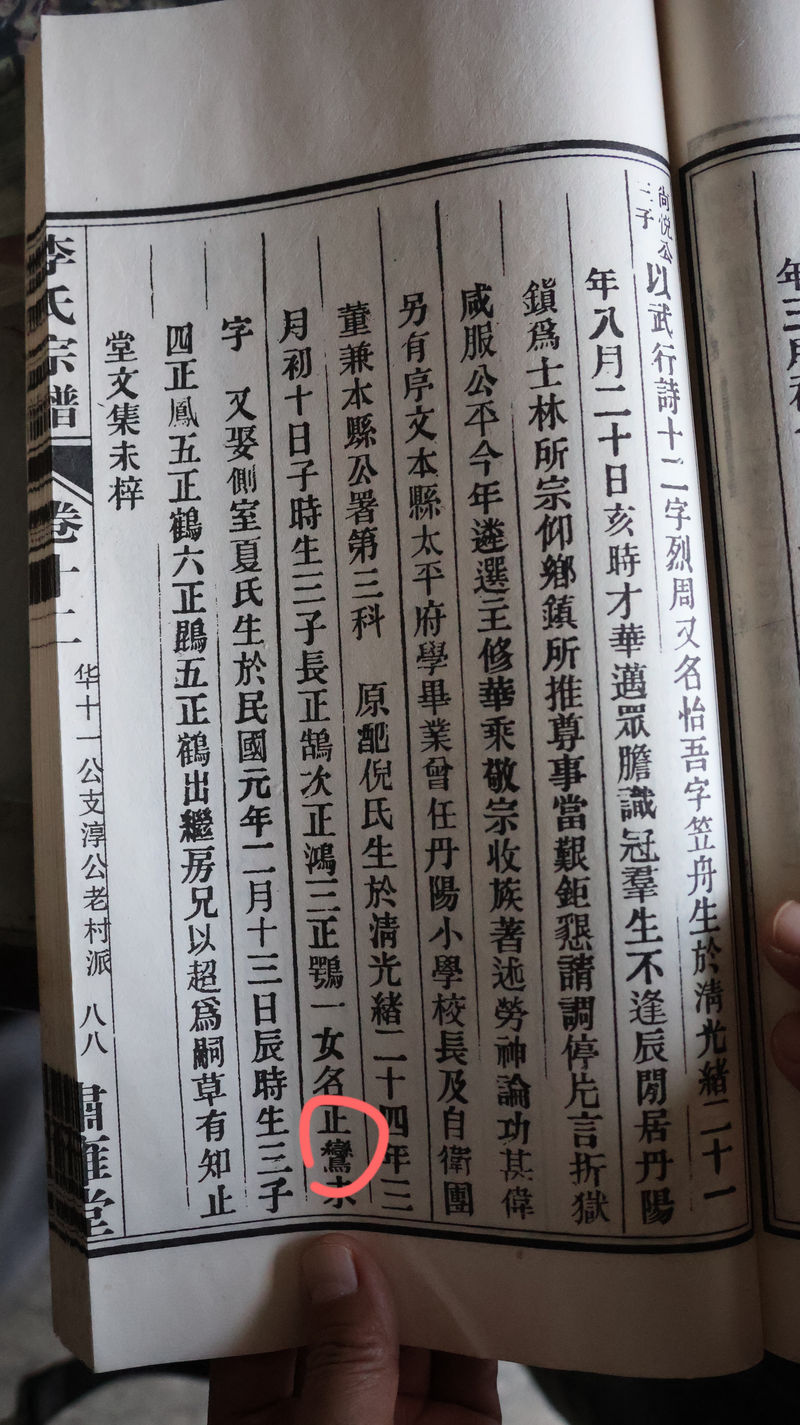 尚悅公
三子
以武行詩十二字烈周又名怡吾字笠舟生於清光緒二十一
年八月二十日亥時才華邁眾膽識冠羣生不逢辰閒居丹陽
鎮爲士林所宗仰鄉鎮所推尊事當艱鉅懇請調停片言折獄
咸服公平今年遴選主修華乘敬宗收族著述勞神論功甚偉
另有序文本縣太平府學畢業曾任丹陽小學校長及自衛團
董兼本縣公署第三科 原配倪氏生於清光緒二十四年三
月初十日子時生三子長正鵠次正鴻三正鶚一女名正鸞未
字 又娶側室夏氏生於民國元年二月十三日辰時生三子
四正鳳五正鶴六正鵾五正鶴出繼房兄以超爲嗣草有知止
堂文集未梓
李氏宗譜
卷十二
华十一公支淳公老村派 八八
肅雍堂